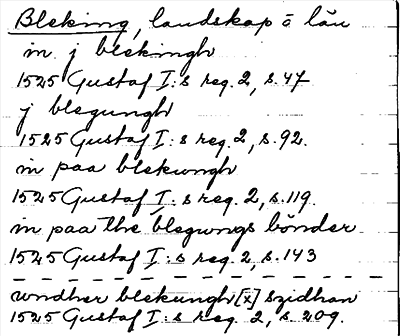 Bleking, landskap å län
in j blekingh
1525 Gustaf I:s reg. 2, s. 47
j blegungh
1525 Gustaf I:s reg. 2, s. 92.
in paa blekwngh
1525 Gustaf I:s reg. 2, s. 119.
in paa the blegungs bönder.
1525 Gustaf I:s reg. 2, s. 143
wndher blekungh [x] szidhan
1525 Gustaf I:s reg. 2, s. 209.